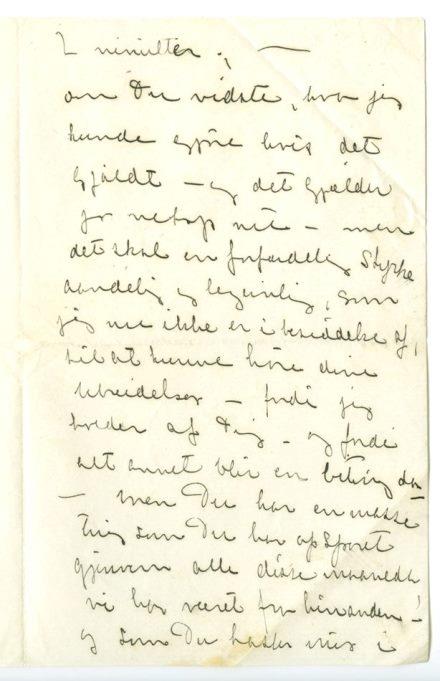 2 minutter; —
om Du vidste, hva jeg
kunde gjøre hvis det
gjældt — og det gjælder
jo netop nu — men
det skal en forfærdelig Styrke
aandelig og legemlig, som
jeg nu ikke er i besiddelse af,
til at kunne høre dine
— fordi jeg
af Dig — og fordi
alt annet blir en
— men Du har en masse
ting som Du har opsparet
gjennem alle disse maaneder
vi har været fra hinanden!
og som Du kaster mig i